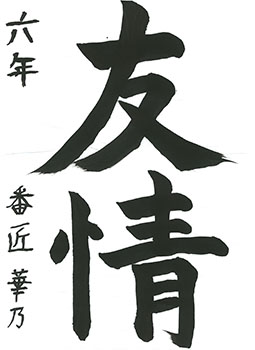 友情
六年 番匠 華乃